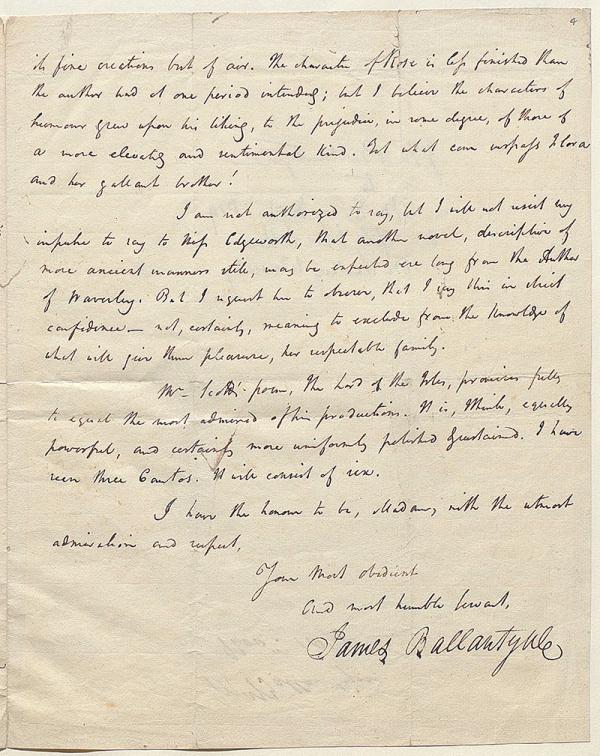 4
its fine creations but of air. The character of Rose is less finished than
the author had at one period intended; but I believe the characters of
humour grew upon his liking, to the prejudice, in some degree, of those of
a more elevated and sentimental kind. Yet what can surpass Flora
and her gallant brother!
I am not authorized to say, but I will not resist my
impulse to say to Miss Edgeworth, that another novel, descriptive of
more ancient manners still, may be expected ere long from the Author
of Waverley. But I request her to observe, that I say this in strict
confidence — not, certainly, meaning to exclude from the knowledge of
what will give them pleasure, her respectable family.
Mr Scott's poem, the Lord of the Isles, promises fully
to equal the most admired of his productions. It is, I think, equally
powerful, and certainly more uniformly polished & sustained. I have
seen three Cantos. It will consist of six.
I have the honour to be, Madam, with the utmost
admiration and respect,
Your most obedient
And most humble Servant,
James Ballantyne